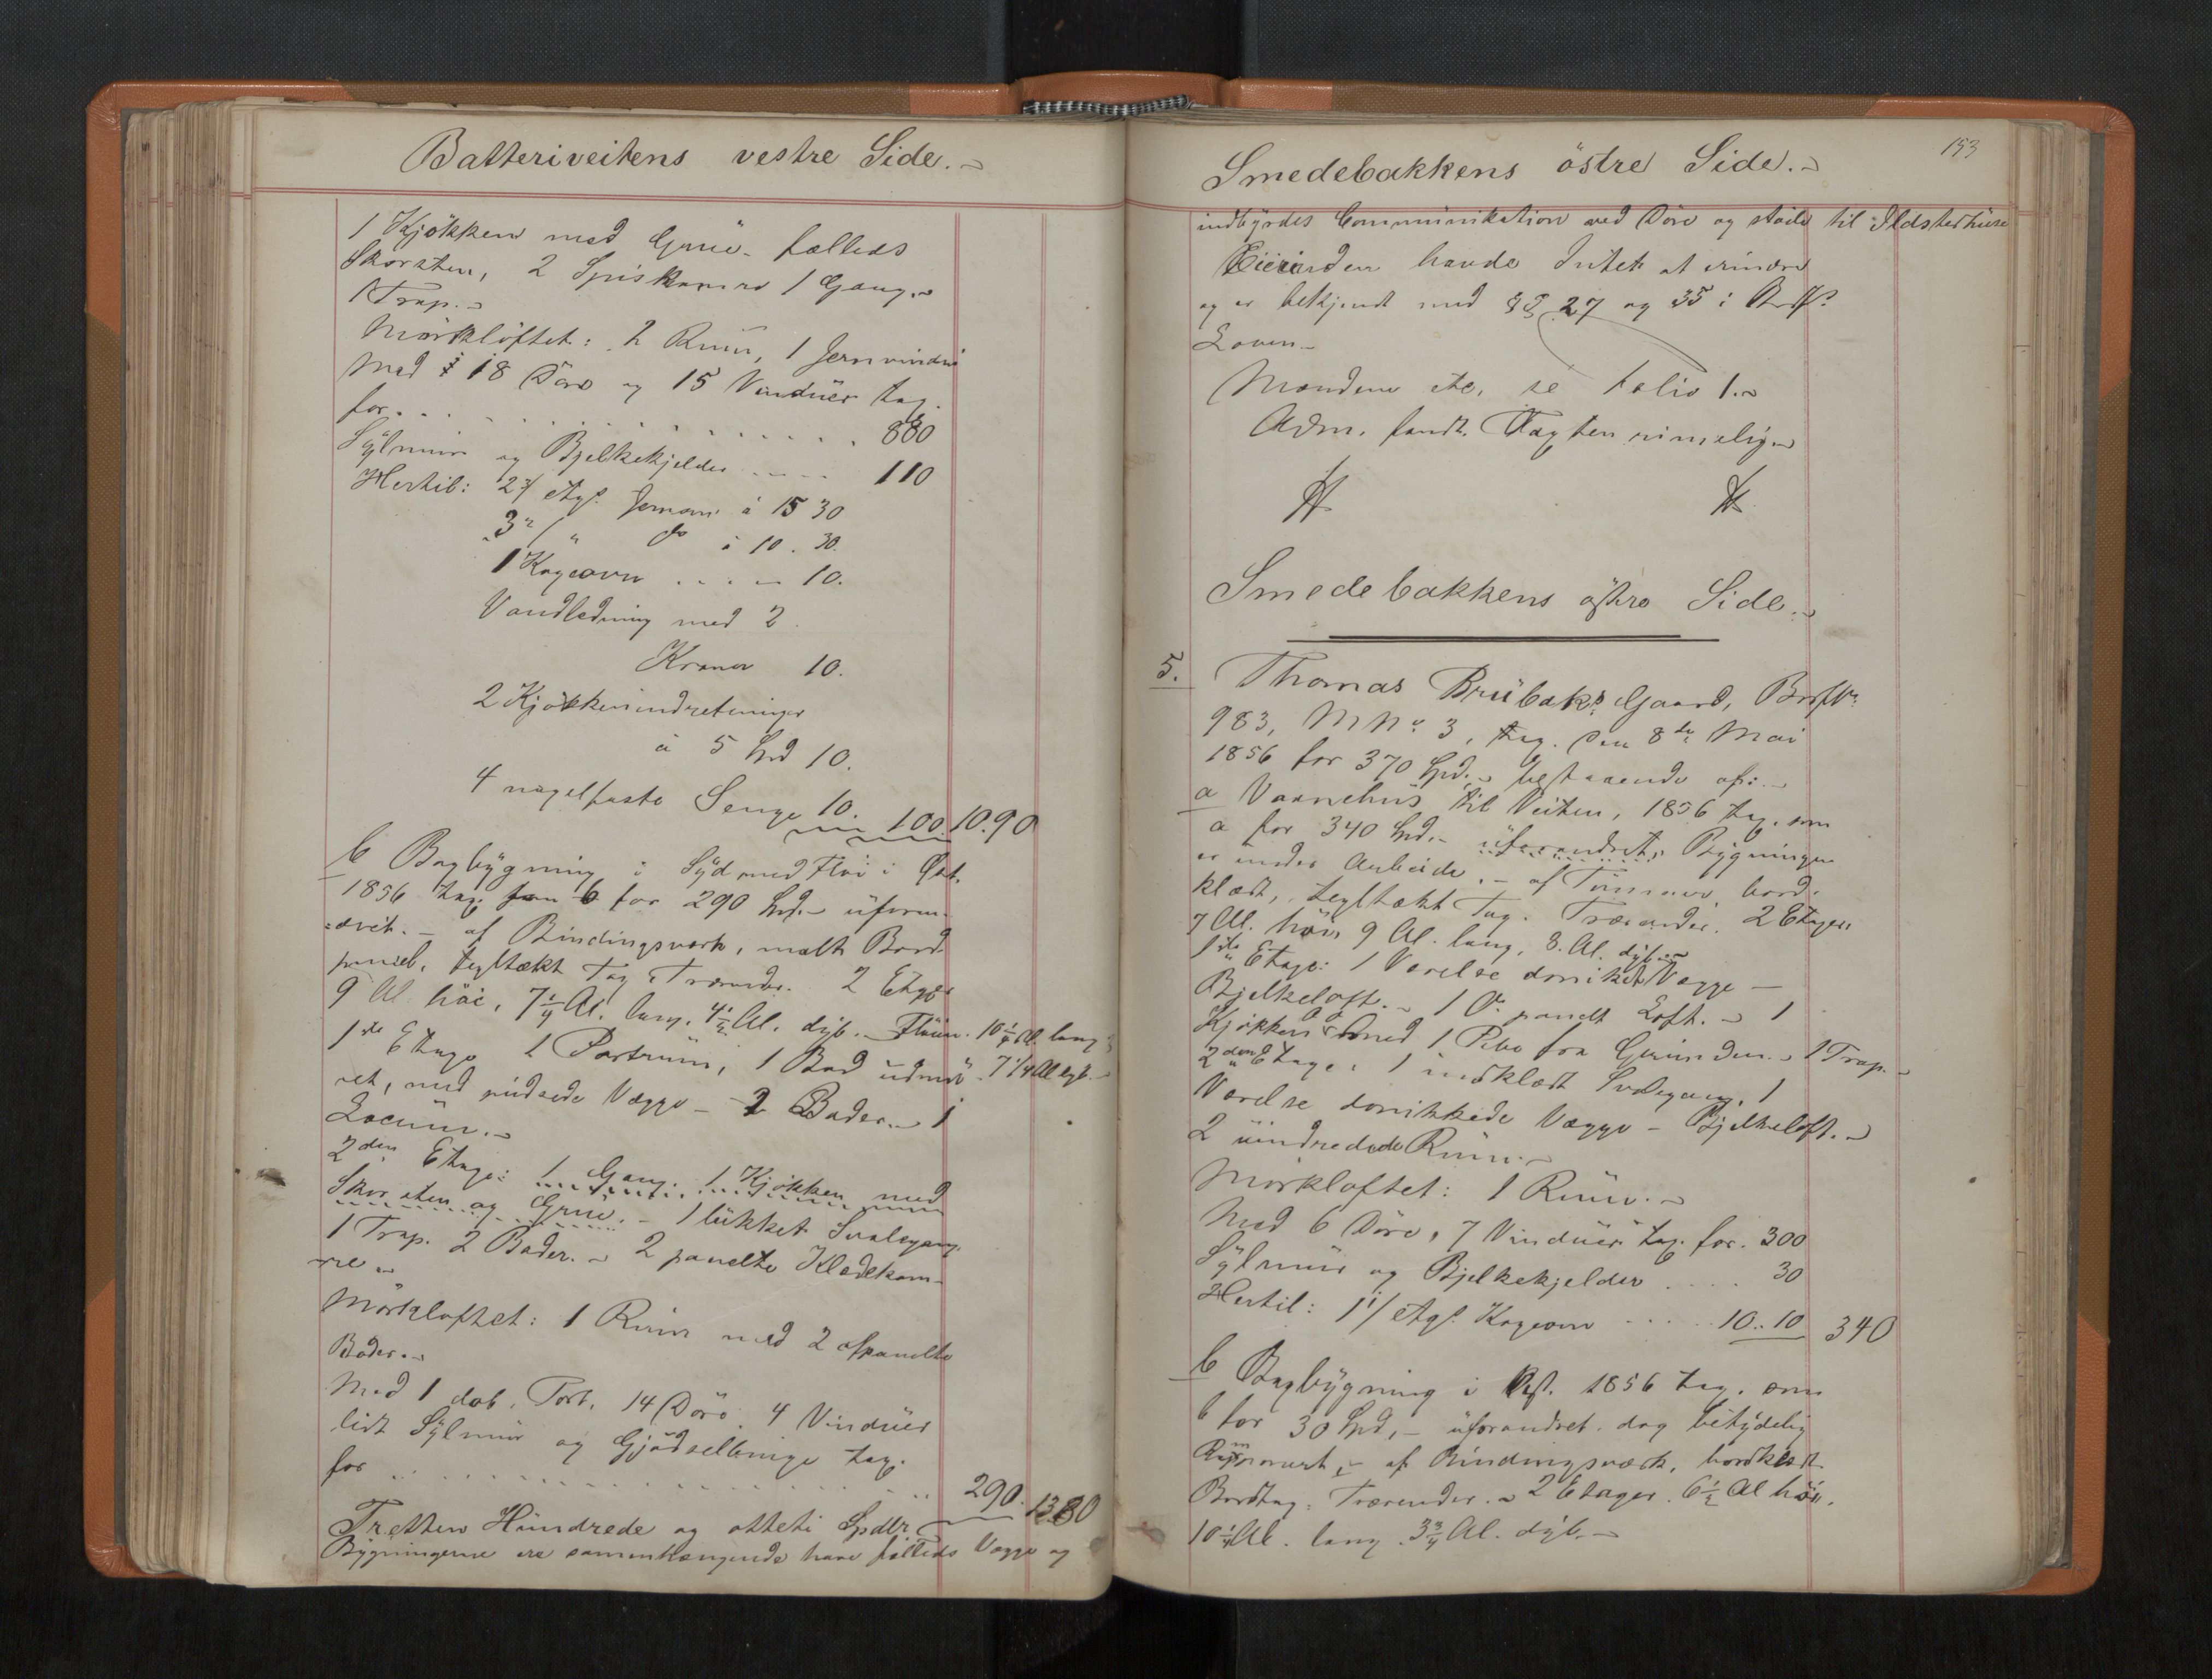 Batteriveitens vestre Side.
1 Kjökken med Grue. fælleds
Skorsten, 2 Spiskamre 1 Gang.
1 Trap.
Mörkloftet: 2 Rum, 1 Jernvindu
Med 18 Döre og 15 Vinduer tax.
for . . . . . . 880
Sylmur og Bjelkekjelder . . . . 110
Hertil: 2 2/ Etgs. Jernovn à 15 30
3 2/ " do à 10 . 30.
1 Kogeovn . . . . 10.
Vandledning med 2
Kraner 10.
2 Kjökkenindretninger
à 5 Spd 10.
4 nagelfaste Senge 10. 100. 10.90
b Bagbygning i Syd med Flöi i Öst.
1856 tax. som b for 290 Spd. uforan-
dret. - af Bindingsverk, malt Bord-
paneel, teglhækt Tag. Trærender. 2 Etager
9 Al. höi, 7 1/4 Al. lang. 4 1/2 Al. dyb. Flöien 10 1/4 Al. lang
1ste Etage 1 Portrum, 1 Bod udmu- 7 1/4 Al dyb.
ret, med pudsede Vægge - 2 Boder. 1
Locum.
2den Etage: 1 Gang. 1 Kjökken med
Skorsten og Grue. - 1 lukket Svalegang.
1 Trap. 2 Boder. 2 panelte Klædekam-
re.
Mörkloftet: 1 Rum med 2 afpanelte
Boder.
Med 1 dob. Port, 14 Döre. 4 Vinduer
lidt Sylmur og Gjödselbinge tax.
for . . . . . . 290. 1380
Tretten Hundrede og otteti Spdlr.
Bygningerne ere sammenhængende have fælleds Vægge og
153
Smedebakkens östre Side.
indbyrdes Communikation ved Döre og stöde til Ildstedhuse
Eierinden havde Intet at erindre
og er bekjendt med §§ 27 og 35 i Brdf.
Loven.
Mændene etc. se folio 1.
Adm. fandt Taxten rimelig
Smedebakkens östre Side.
5. Thomas Brubaks Gaard, Brdf No.
983, M No. 3, tax. den 8de Mai
1856 for 370 Spd. bestaaende af:
a Vaanehus til Veiten, 1856 tax. som
a for 340 Spd. uforandret, Bygningen
er under Arbeide. - af Tömmer, bord-
klædt, teglhækt Tag. Trærender. 2 Etager
7 Al. höi, 9 Al. lang, 8. Al. dyb.
1ste Etage: 1 Værelse donikket Vægge -
Bjelkeloft. 1 Do. panelt Loft. 1
Kjökken med 1 Pibe fra Grunden. 1 Trap.
2den Etage: 1 indklædt Svalegang. 1
Værelse donikkede Vægge - Bjelkeloft.
2 uindredede Rum.
Mörkloftet: 1 Rum.
Med 6 Döre, 7 Vinduer tax. for. 300
Sylmur og Bjelkekjelder . . . . 30
Hertil: 1 1/ Etgs. Kogeovn . . . . 10. 10 340
b Bagbygning i Öst. 1856 tax. som
b for 30 Spd. - uforandret. dog betydelig
- af Bindingsværk, bordklædt
Bordtag. Trærender. 2 Etager. 6 1/2 Al höi.
10 1/4 Al. lang. 3 3/4 Al. dyb.